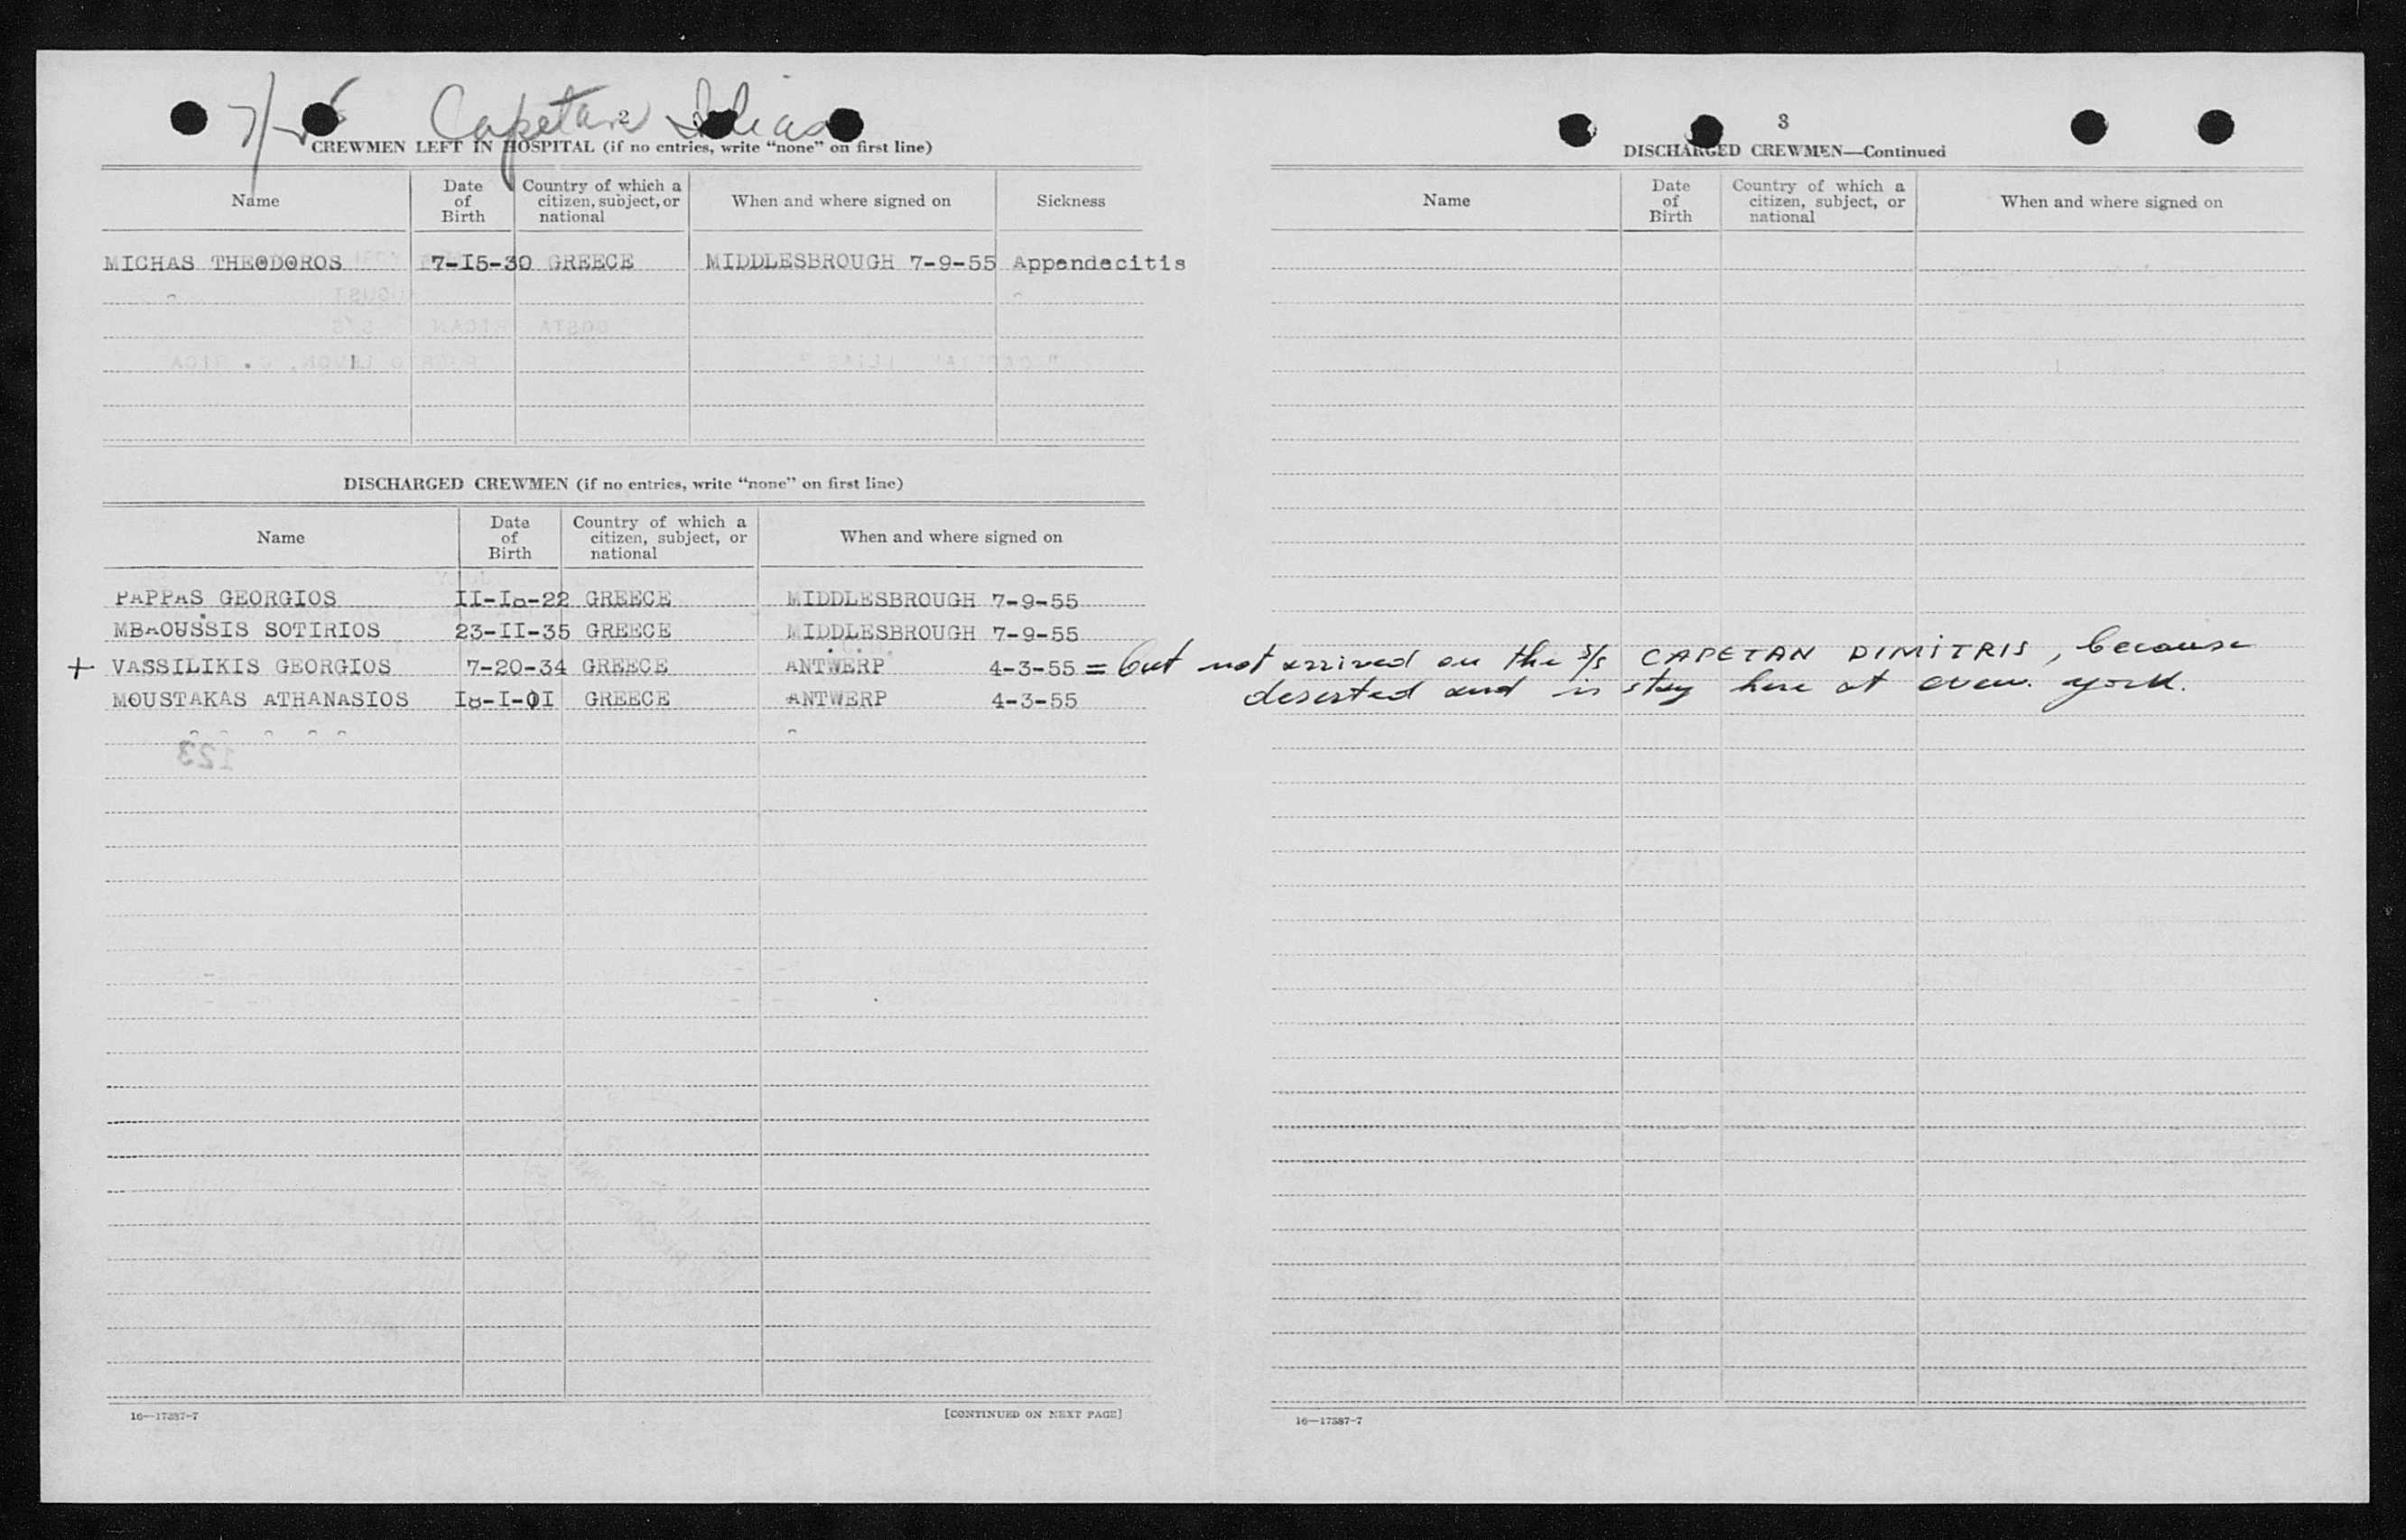 Capetan Ilias
2
CREWMEN LEFT IN HOSPITAL (if no entries, write “none” on first line)
Name Date of Birth Country of which a citizen, subject, or national When and where signed on Sickness
MICHAS THEODOROS 7-I5-30 GREECE MIDDLESBROUGH 7-9-55 Appendecitis
DISCHARGED CREWMEN (if no entries, write “none” on first line)
Name Date of Birth Country of which a citizen, subject, or national When and where signed on
PAPPAS GEORGIOS II-Io-22 GREECE MIDDLESBROUGH 7-9-55
MBAOUSSIS SOTIRIOS 23-II-35 GREECE MIDDLESBROUGH 7-9-55
+ VASSILIKIS GEORGIOS 7-20-34 GREECE ANTWERP 4-3-55 = but not arrived on the s/s CAPETAN DIMITRIS, because
deserted and is stay here at new york.
MOUSTAKAS ATHANASIOS I8-I-01 GREECE ANTWERP 4-3-55
123
16—17387-7 [CONTINUED ON NEXT PAGE]
3
DISCHARGED CREWMEN—Continued
Name Date of Birth Country of which a citizen, subject, or national When and where signed on
16—17387-7